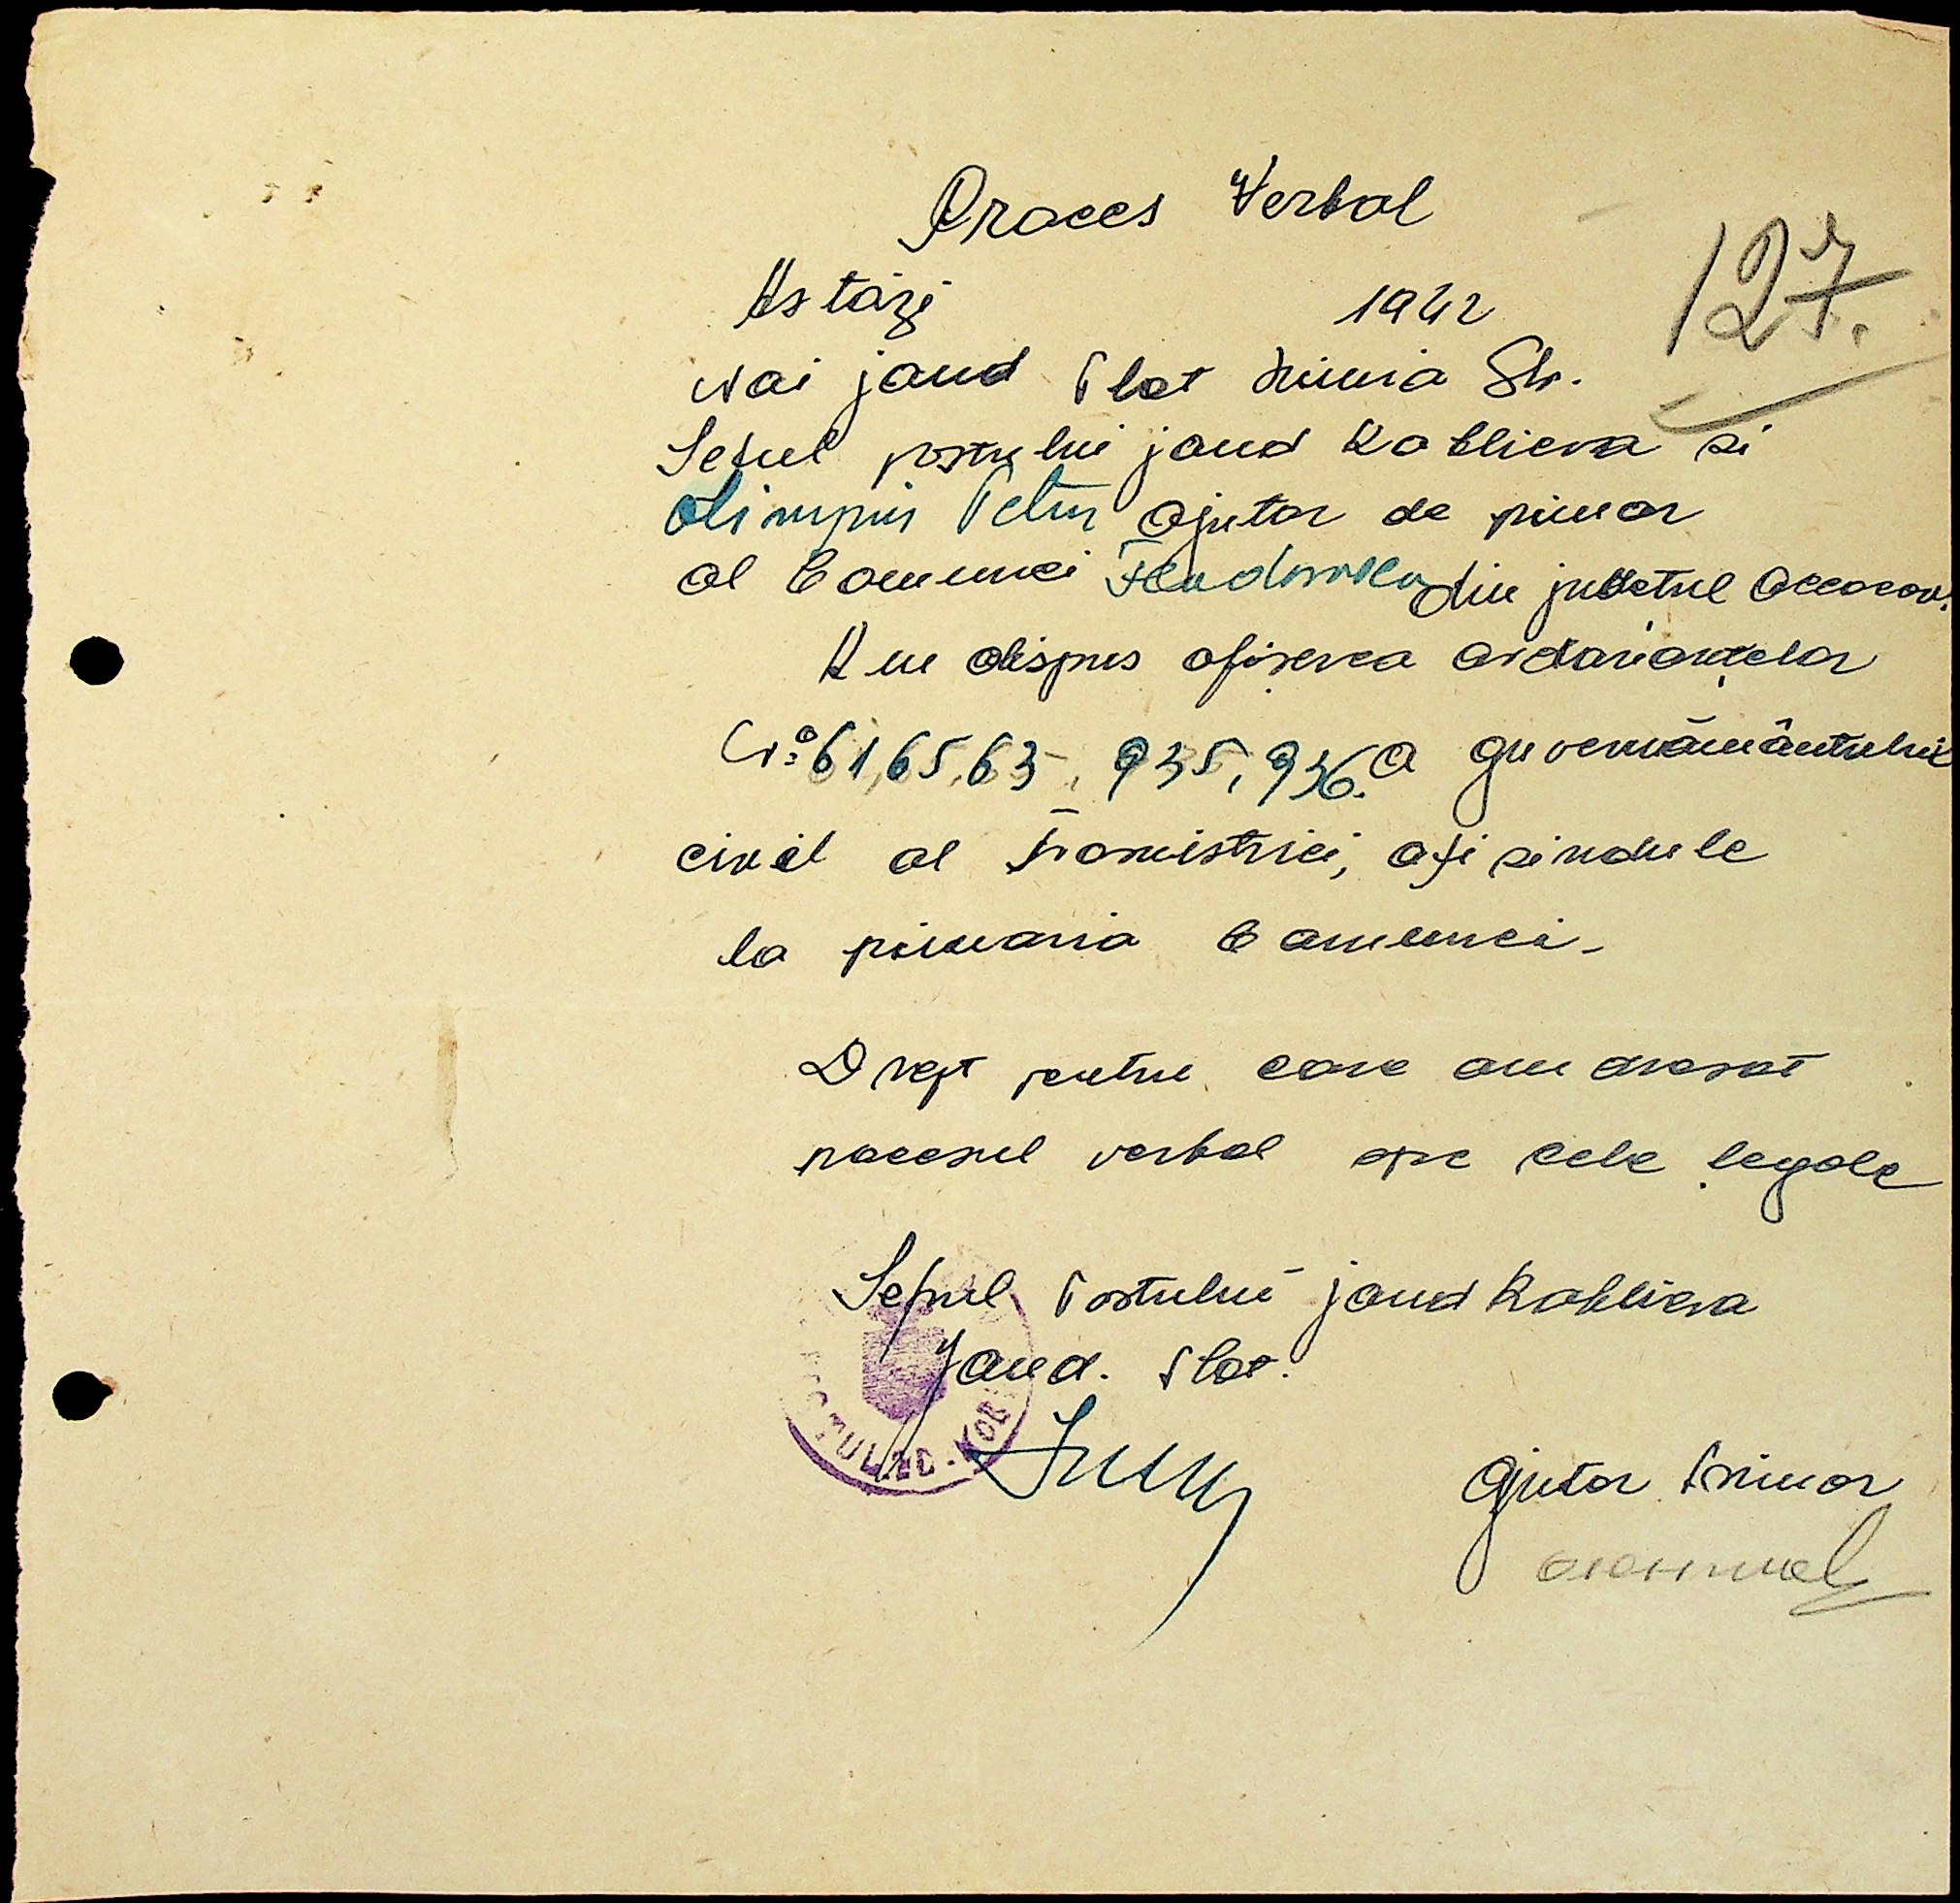 Proces Verbal
127.
Astăzi 1942
Noi jand Plot Inimia Gh.
Seful postului jand Kablieva si
Olimpii Petru ajutor de primar
al Comunei din judetul Oceacov.
Am dispus afiserea ordonanțelor
No: 61, 65, 63, 935, 936. a guvernământului
civil al Transnistriei, afisindule
la primaria Comunei.
Drept pentru care am dresat
procesul verbal spre cele legale
Seful Postului jand Kablieva
Jand. Plot.
Ajutor Primar